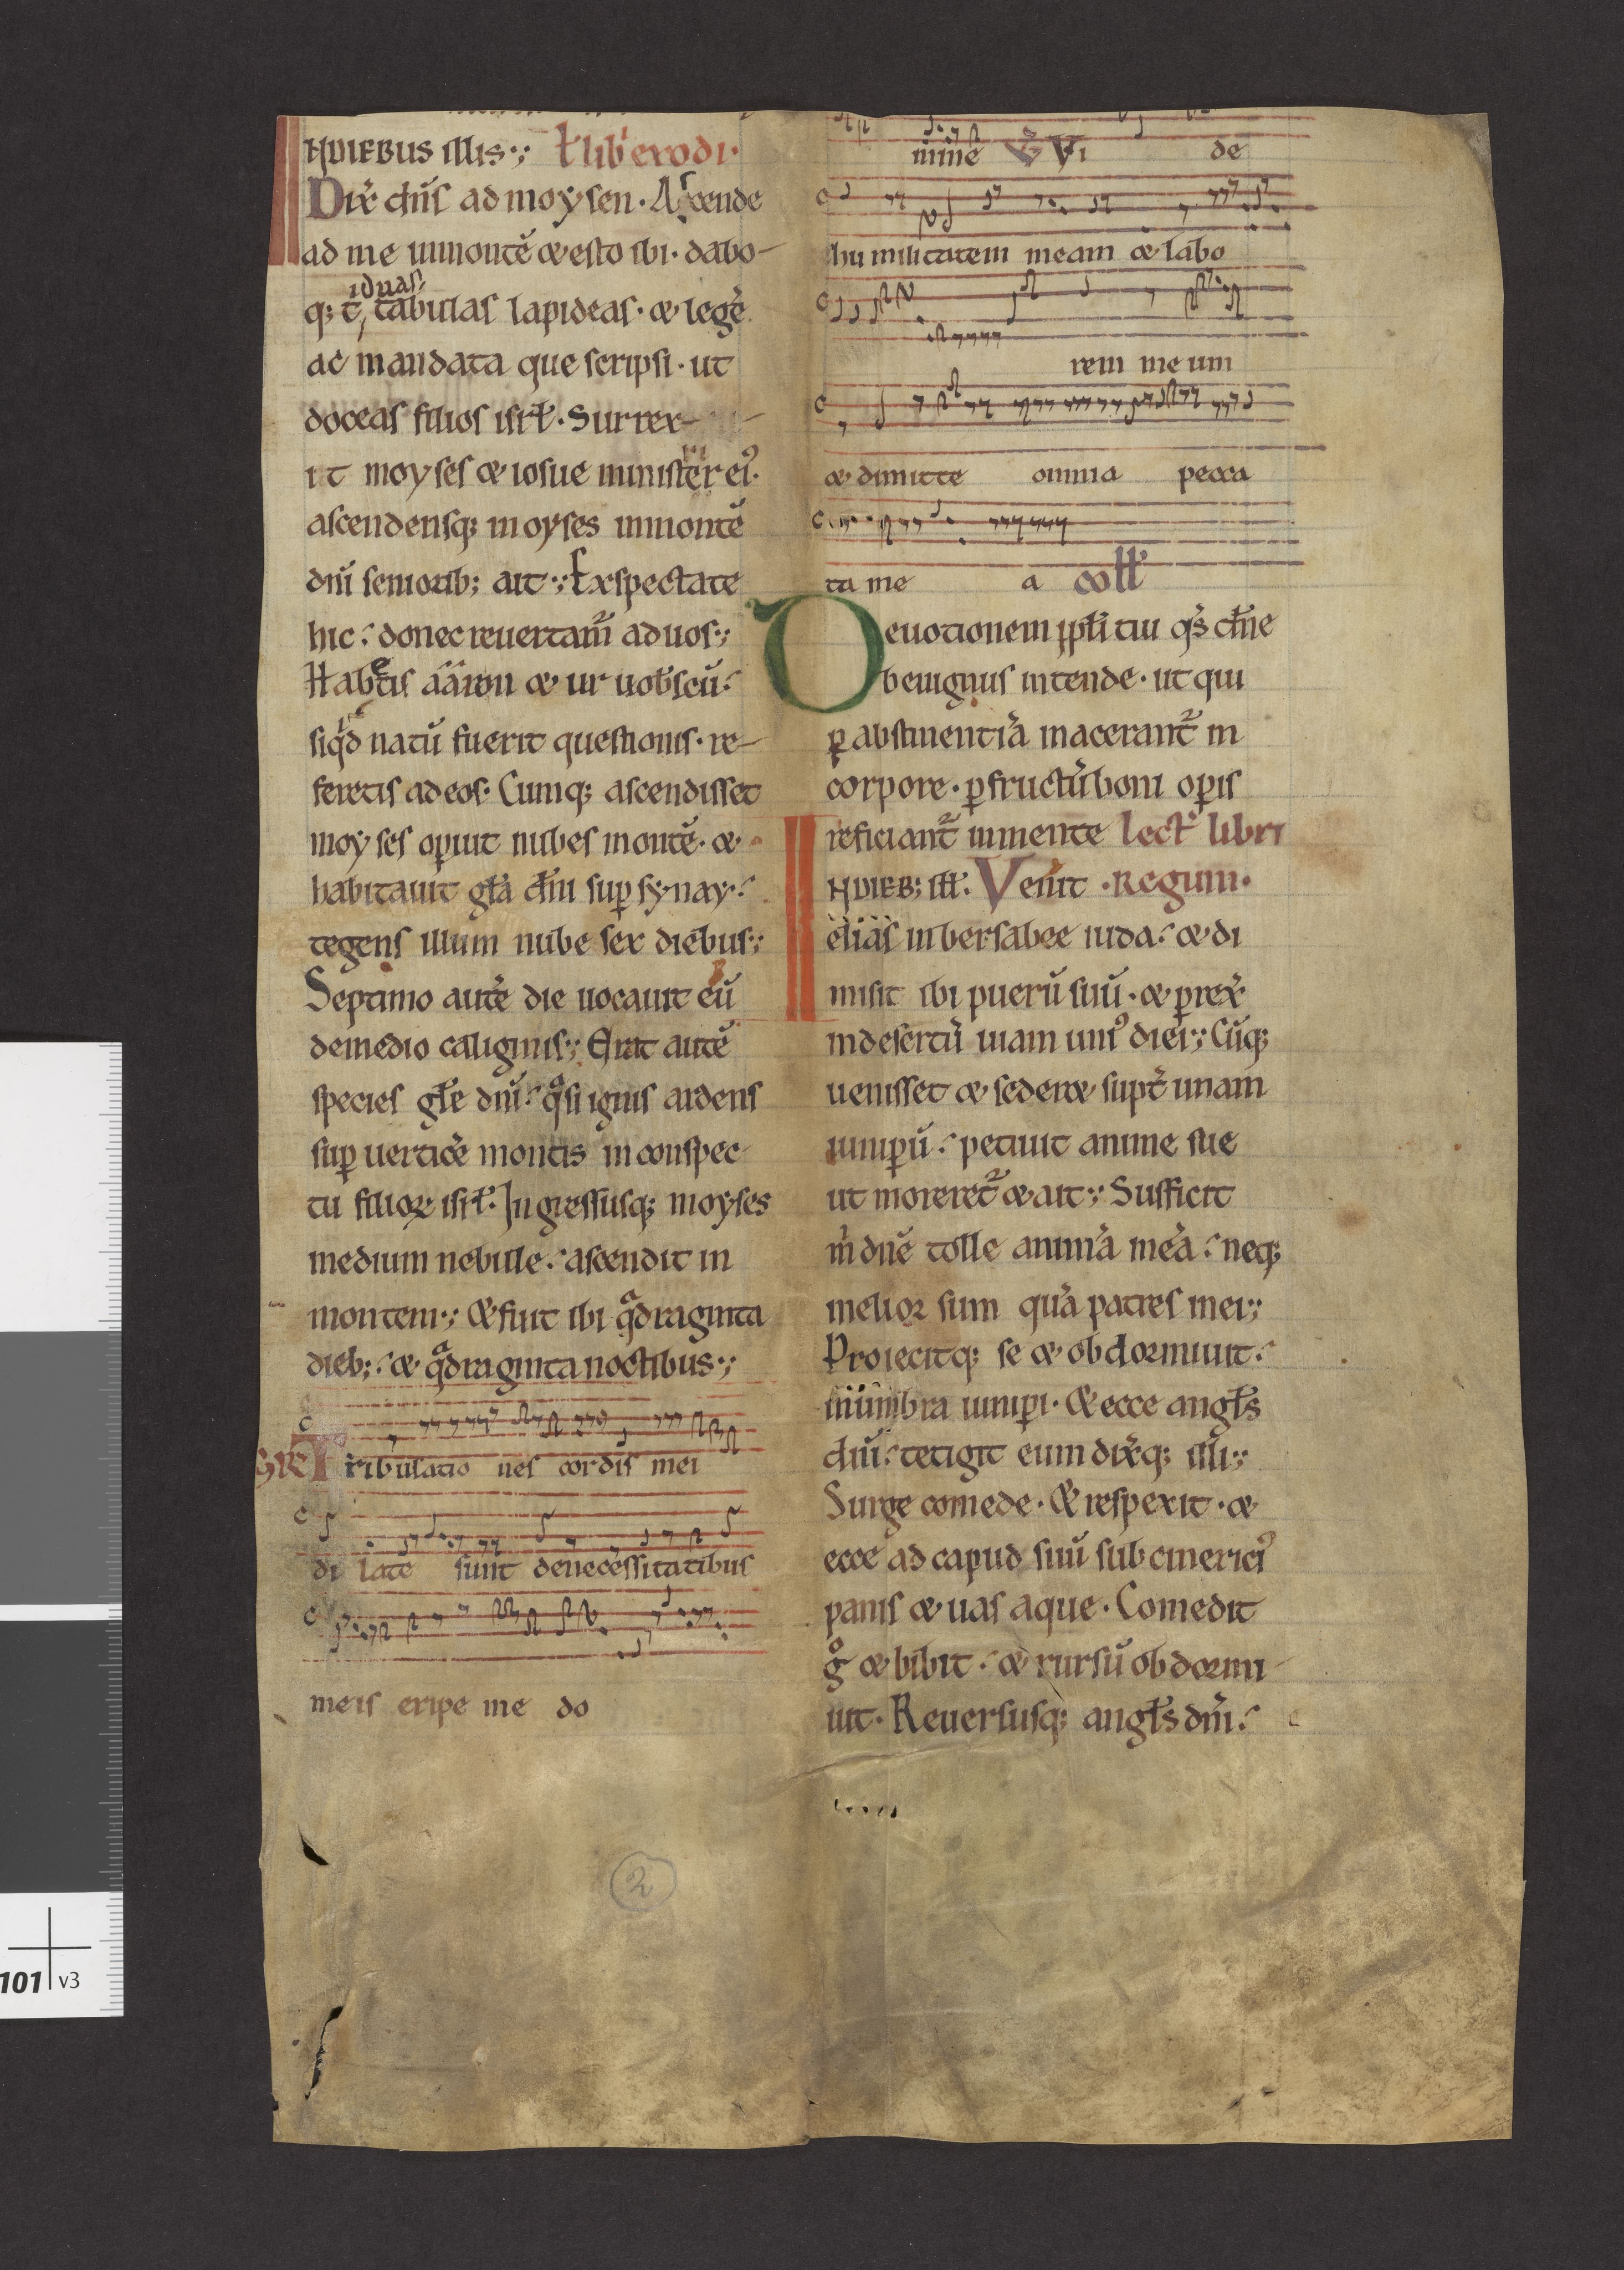 IN DIEBUS illis·,· ł lib' exodi·
Dix̄ dn̄s ad moysen· Ascende
ad me inmontē & esto ibi· dabo-
iduas
q; t, tabulas lapideas· & legē
ac mandata que scripsi· ut
doceas filios isrł· Surrex-
it moyses & iosue minister ei᾿·
ascendensq; moyses inmontē
dn̄i seniorib; ait·,· Exspectate
hic·' donec reuertam᷑ ad uos·,·
Habetis aaron & ur uob̄scū·'
siqͥd natū fuerit questionis· re-
feretis ad eos· Cumq; ascendisset
moyses opuit nubes montē· &
habitauit głā dn̄i sup synay·'
tegens illum nube sex diebus·,·
Septimo autē die uocauit eū
demedio caliginis·,· Erat autē
species głe dn̄i·' qͣsi ignis ardens
sup uerticē montis in conspec
tu filioꝝ isrł· Ingressusq; moyses
medium nebule·' ascendit in
montem·,· & fuit ibi qͣdraginta
dieb;·' & qͣdraginta noctibus·,·
GR Tribulatio nes cordis mei
di late sunt denecessitatibus
meis eripe me do
mine V̄ Vi de
humilitatem meam & labo
rem me um
& dimitte omnia pecca
ta me a coll'
Deuotionem ppłi tui qs̄ dn̄e
benignus intende· ut qui
p abstinentiā macerant᷑ in
corpore· p fructū boni opis
reficiant᷑ inmente lect' libri
IN DIEB; ill'· Venit ·Regum·
elias inbersabee iuda·' & di
misit ibi puerū suū· & prex̄
indesertū uiam uni᾿ diei·,· Cūq;
uenisset & seder& supt̄ unam
iunipū·' petiuit anime sue
ut moreret᷑ & ait·,· Sufficit
m̄ dn̄e tolle animā meā·' neq;
melior sum quā patres mei·,·
Proiecitq; se & obdormiuit·'
inumbra iunipi· & ecce angłs
dn̄i·' tetigit eum dix̄q; illi·,·
Surge comede· & respexit· &
ecce ad capud suū subcinerici᾿
panis & uas aque· Comedit
gͦ & bibit·' & rursū obdormi
uit· Reuersusq; angłs dn̄i·'
2
101 v3